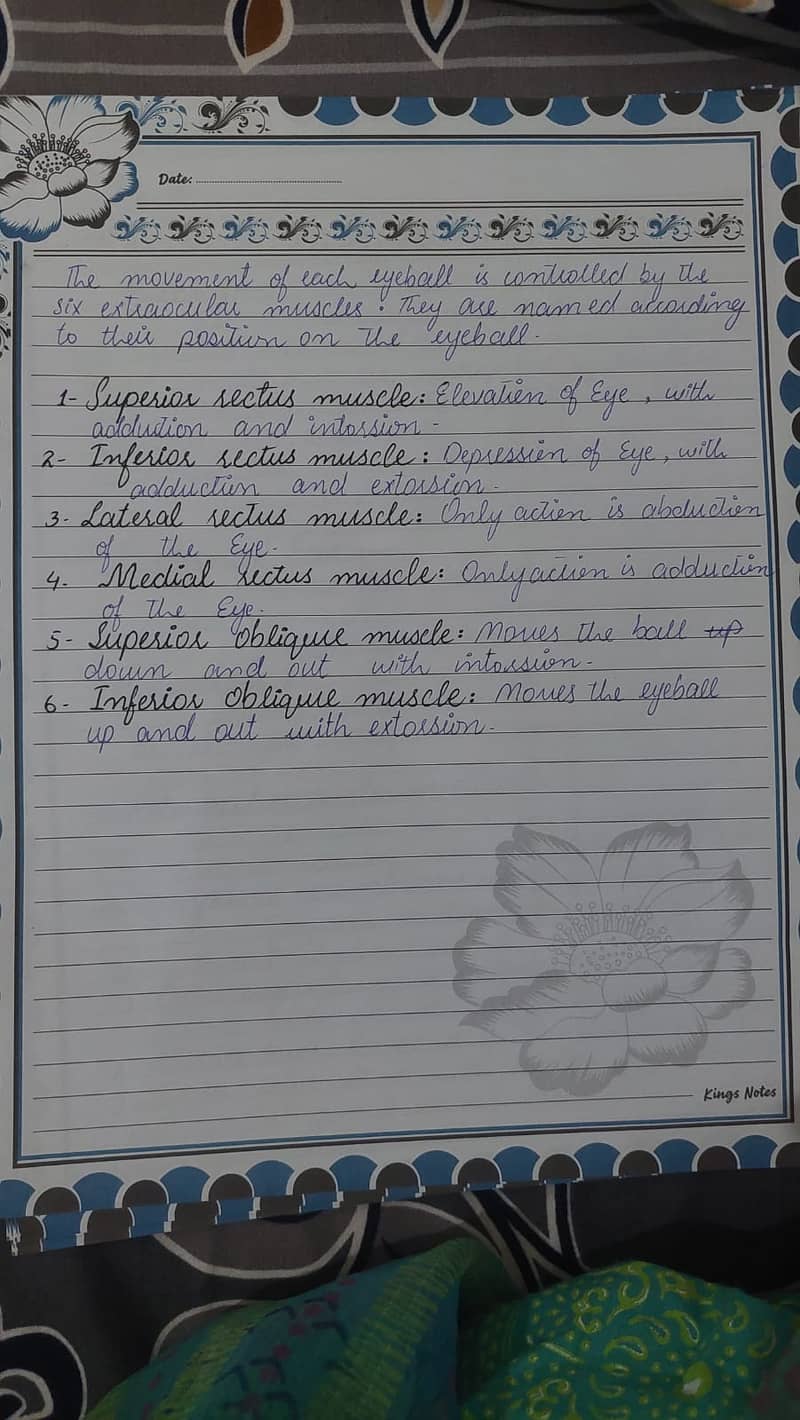 Date:
The movement of each eyeball is controlled by the
six extraocular muscles. They are named according
to their position on the eyeball.
1- Superior rectus muscle: Elevation of Eye, with
adduction and intorsion -
2- Inferior rectus muscle: Depression of Eye, with
adduction and extorsion.
3- Lateral rectus muscle: Only action is abduction
of the Eye.
4. Medial rectus muscle: Only action is adduction
of the Eye.
5- Superior oblique muscle: Moves the ball up
down and out with intorsion -
6- Inferior oblique muscle: Moves the eyeball
up and out with extorsion -
Kings Notes